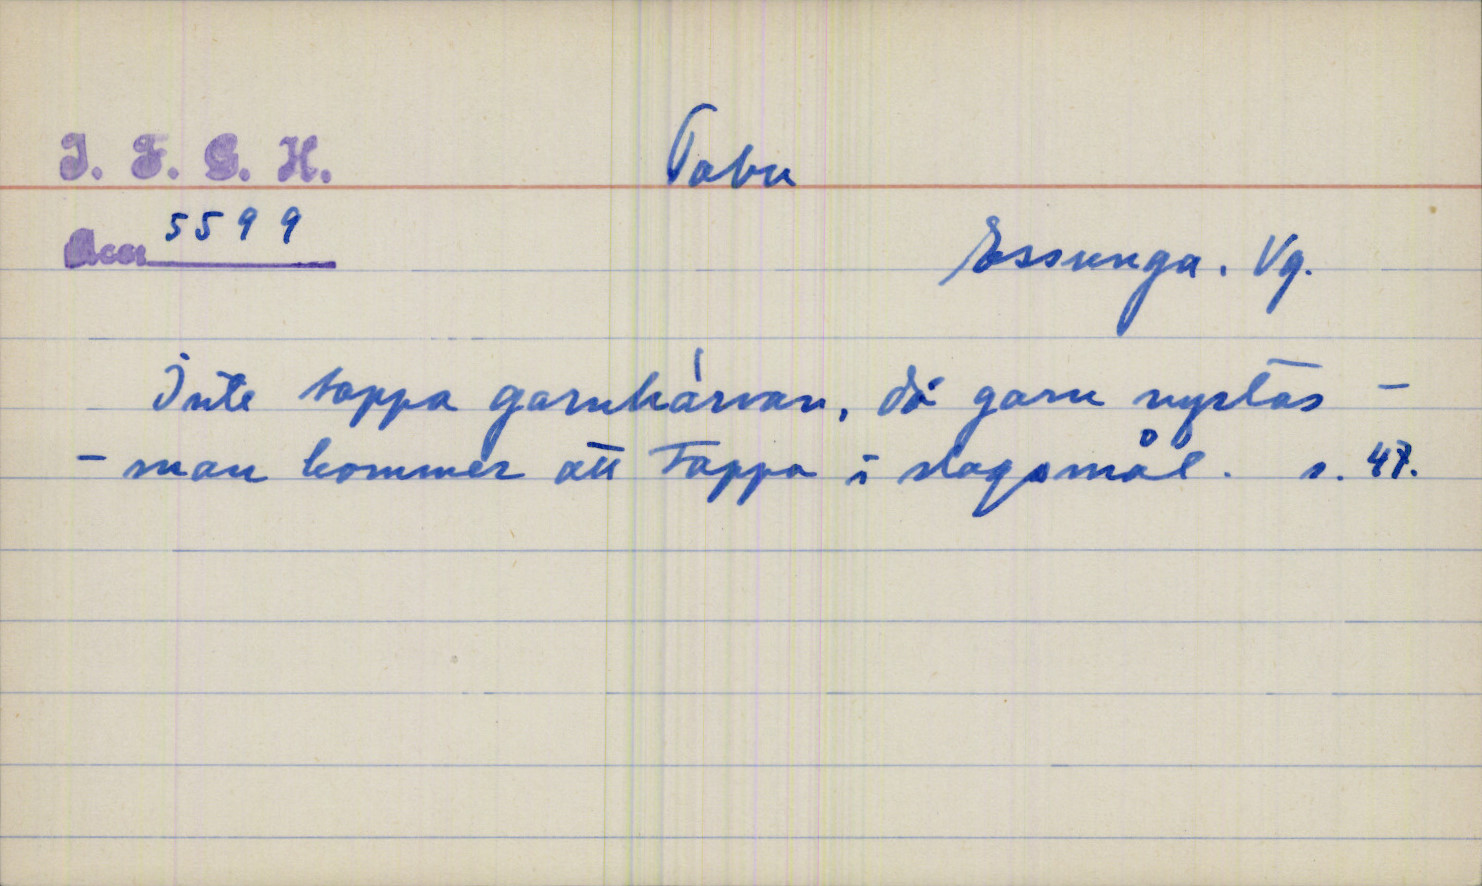 I. F. G. H.
Tabu
Acc. 5599
Essunga. Vg.
Inte tappa garnhärvan, då garn nystas -
- man kommer att tappa i slagsmål. s. 47.